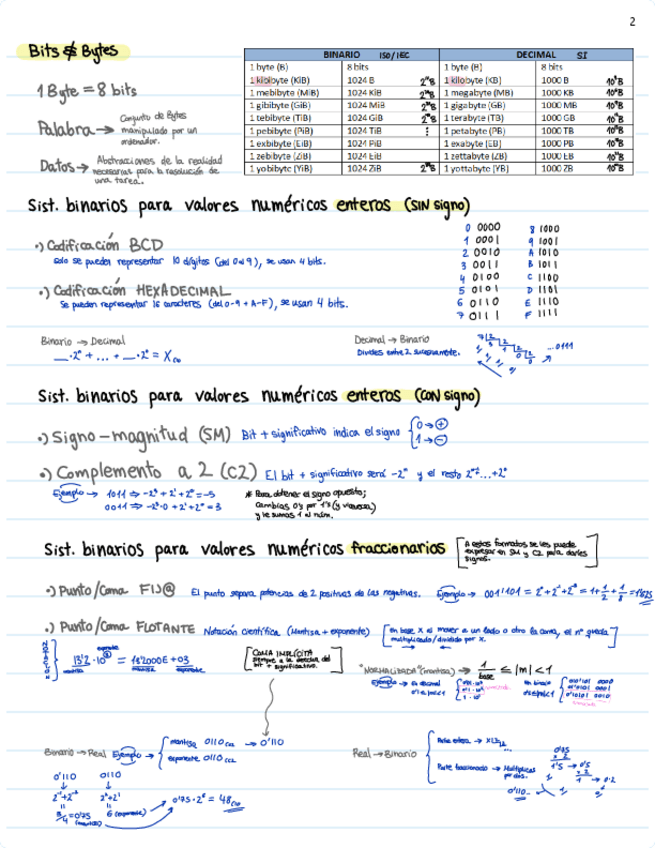 2
Bits & Bytes
BINARIO ISO/IEC DECIMAL SI
1 byte (B) 8 bits 1 byte (B) 8 bits
1 kibibyte (KiB) 1024 B 1 kilobyte (KB) 1000 B
1 mebibyte (MiB) 1024 KiB 1 megabyte (MB) 1000 KB
1 gibibyte (GiB) 1024 MiB 1 gigabyte (GB) 1000 MB
1 tebibyte (TiB) 1024 GiB 1 terabyte (TB) 1000 GB
1 pebibyte (PiB) 1024 TiB 1 petabyte (PB) 1000 TB
1 exbibyte (EiB) 1024 PiB 1 exabyte (EB) 1000 PB
1 zebibyte (ZiB) 1024 EiB 1 zettabyte (ZB) 1000 EB
1 yobibyte (YiB) 1024 ZiB 1 yottabyte (YB) 1000 ZB
1 Byte = 8 bits
Palabra → Conjunto de Bytes
manipulado por un
ordenador.
Datos → Abstracciones de la realidad
necesarias para la resolución de
una tarea.
Sist. binarios para valores numéricos enteros (SIN signo)
•) Codificación BCD
Solo se pueden representar 10 dígitos (del 0 al 9), se usan 4 bits.
•) Codificación HEXADECIMAL
Se pueden representar 16 caracteres (del 0-9 + A-F), se usan 4 bits.
0 0000 8 1000
1 0001 9 1001
2 0010 A 1010
3 0011 B 1011
4 0100 C 1100
5 0101 D 1101
6 0110 E 1110
7 0111 F 1111
Binario → Decimal
__·2ⁿ + ... + __·2⁰ = X₍₁₀
Decimal → Binario
Divides entre 2 sucesivamente.
...0111
Sist. binarios para valores numéricos enteros (CON signo)
•) Signo-magnitud (SM) Bit + significativo indica el signo { 0 → ⊕
1 → ⊖
•) Complemento a 2 (C2) El bit + significativo será -2ⁿ y el resto 2ⁿ⁻¹...+2⁰
Ejemplo → 1011 ⇒ -2³+2¹+2⁰ = -5
0011 ⇒ -2³·0+2¹+2⁰ = 3
* Para obtener el signo opuesto;
Cambias 0's por 1's (y viceversa)
y le sumas 1 al núm.
Sist. binarios para valores numéricos fraccionarios
[A estos formatos se les puede
expresar en SM y C2 para darles
signos.]
•) Punto/Coma FIJ@ El punto separa potencias de 2 positivas de las negativas. Ejemplo → 001'101 = 2⁰+2⁻¹+2⁻³ = 1+1/2+1/8 = 1'625
•) Punto/Coma FLOTANTE Notación científica (Mantisa + exponente)
[en base X al mover a un lado o otro la coma, el nº queda
multiplicado/dividido por X.]
exponente
mantisa
[COMA IMPLÍCITA
siempre a la derecha del
bit + significativo.]
"NORMALIZADA" (mantisa) → 1/base ≤ |m| < 1
Ejemplo → En decimal
en binario
Binario → Real Ejemplo → { mantisa 0110 C2 → 0'110
exponente 0110 C2
0'110 0110
2⁻¹+2⁻² 2²+2¹
3/4 = 0'75 6 (exponente)
(mantisa)
0'75·2⁶ = 48₍₁₀
Real → Binario
Parte entera →
Parte fraccionada → Multiplicas
por dos.
0'75
x 2
1'5 → 0'5
x 2
0'110